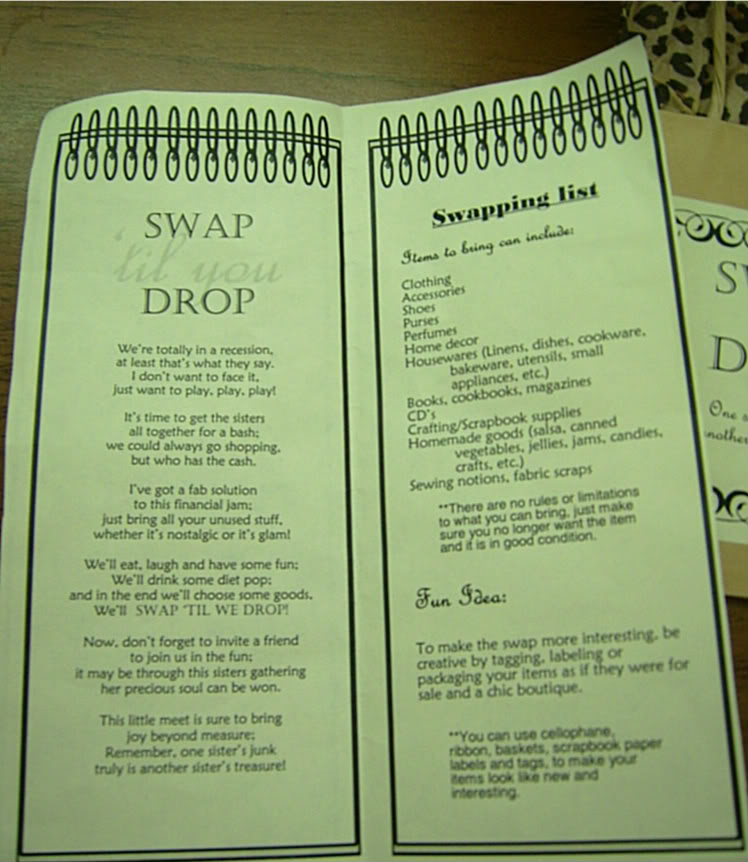 SWAP
'til you
DROP
We're totally in a recession,
at least that's what they say.
I don't want to face it,
just want to play, play, play!
It's time to get the sisters
all together for a bash;
we could always go shopping,
but who has the cash.
I've got a fab solution
to this financial jam;
just bring all your unused stuff,
whether it's nostalgic or it's glam!
We'll eat, laugh and have some fun;
We'll drink some diet pop;
and in the end we'll choose some goods,
We'll SWAP 'TIL WE DROP!
Now, don't forget to invite a friend
to join us in the fun;
it may be through this sisters gathering
her precious soul can be won.
This little meet is sure to bring
joy beyond measure;
Remember, one sister's junk
truly is another sister's treasure!
Swapping list
Items to bring can include:
Clothing
Accessories
Shoes
Purses
Perfumes
Home decor
Housewares (Linens, dishes, cookware,
bakeware, utensils, small
appliances, etc.)
Books, cookbooks, magazines
CD's
Crafting/Scrapbook supplies
Homemade goods (salsa, canned
vegetables, jellies, jams, candies,
crafts, etc.)
Sewing notions, fabric scraps
**There are no rules or limitations
to what you can bring, just make
sure you no longer want the item
and it is in good condition.
Fun Idea:
To make the swap more interesting, be
creative by tagging, labeling or
packaging your items as if they were for
sale and a chic boutique.
**You can use cellophane,
ribbon, baskets, scrapbook paper
labels and tags, to make your
items look like new and
interesting.
One